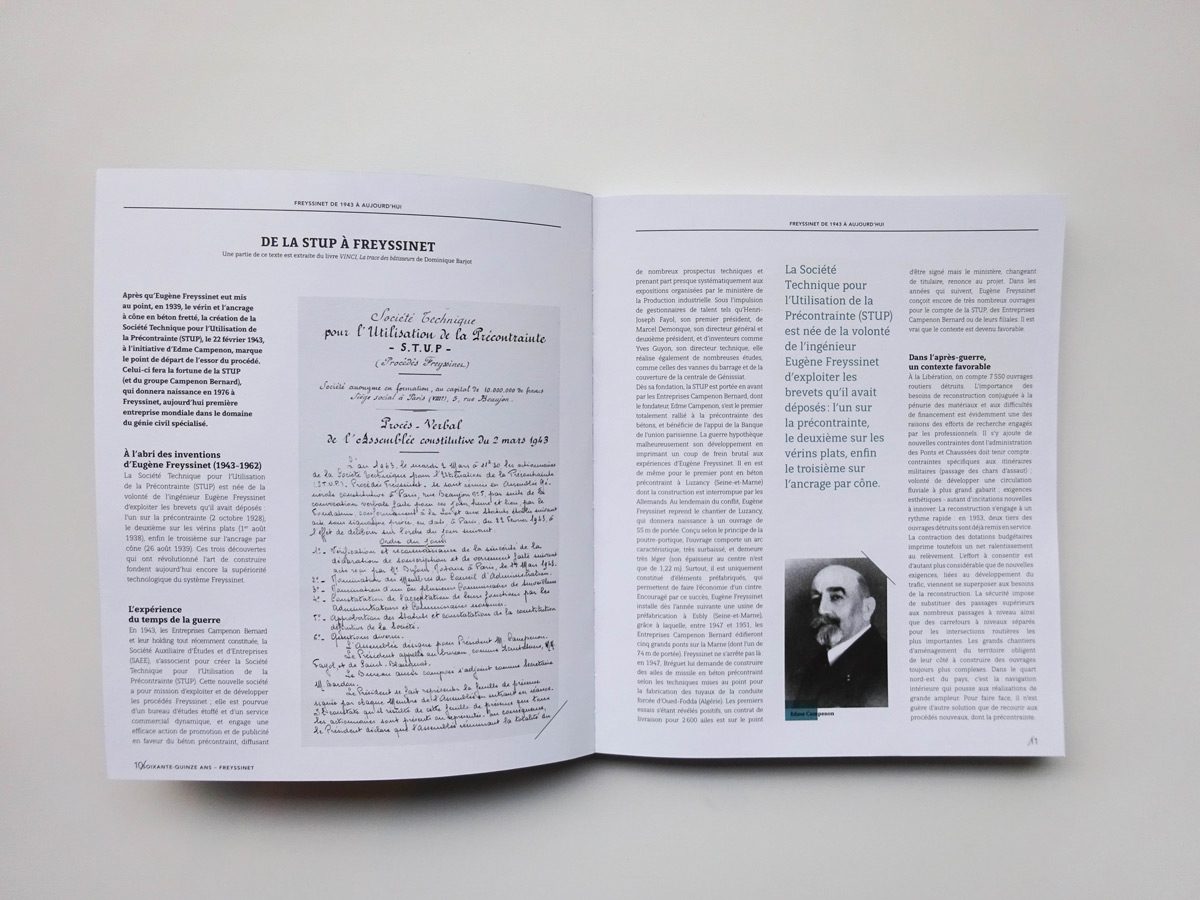 FREYSSINET DE 1943 À AUJOURD'HUI
DE LA STUP À FREYSSINET
Une partie de ce texte est extraite du livre VINCI, La trace des bâtisseurs de Dominique Barjot
Après qu'Eugène Freyssinet eut mis
au point, en 1939, le vérin et l'ancrage
à cône en béton fretté, la création de la
Société Technique pour l'Utilisation de
la Précontrainte (STUP), le 22 février 1943,
à l'initiative d'Edme Campenon, marque
le point de départ de l'essor du procédé.
Celui-ci fera la fortune de la STUP
(et du groupe Campenon Bernard),
qui donnera naissance en 1976 à
Freyssinet, aujourd'hui première
entreprise mondiale dans le domaine
du génie civil spécialisé.
À l'abri des inventions
d'Eugène Freyssinet (1943-1962)
La Société Technique pour l'Utilisation
de la Précontrainte (STUP) est née de la
volonté de l'ingénieur Eugène Freyssinet
d'exploiter les brevets qu'il avait déposés :
l'un sur la précontrainte (2 octobre 1928),
le deuxième sur les vérins plats (1er août
1938), enfin le troisième sur l'ancrage par
cône (26 août 1939). Ces trois découvertes
qui ont révolutionné l'art de construire
fondent aujourd'hui encore la supériorité
technologique du système Freyssinet.
L'expérience
du temps de la guerre
En 1943, les Entreprises Campenon Bernard
et leur holding tout récemment constituée, la
Société Auxiliaire d'Études et d'Entreprises
(SAEE), s'associent pour créer la Société
Technique pour l'Utilisation de la
Précontrainte (STUP). Cette nouvelle société
a pour mission d'exploiter et de développer
les procédés Freyssinet ; elle est pourvue
d'un bureau d'études étoffé et d'un service
commercial dynamique, et engage une
efficace action de promotion et de publicité
en faveur du béton précontraint, diffusant
Société Technique
pour l'Utilisation de la Précontrainte
- S.T.U.P -
(Procédés Freyssinet)
Société anonyme en formation, au capital de 10.000.000 de francs
Siège social à Paris (VIII), 5, rue Beaujon.
Procès-Verbal
de l'Assemblée constitutive du 2 mars 1943
L'an 1943, le mardi 2 Mars à 11h30 les actionnaires
de la Société Technique pour l'Utilisation de la Précontrainte
(S.T.U.P.), Procédés Freyssinet, se sont réunis en Assemblée
constitutive à Paris, rue Beaujon
Ordre du jour
1°- Vérification et reconnaissance de la sincérité de la
déclaration de souscription et de versement faite suivant
2°- Nomination des Membres du Conseil d'Administration.
3°- Nomination d'un ou plusieurs Commissaires de Surveillance
4°- Constatation de l'acceptation de leurs fonctions par les
Administrateurs et Commissaires nommés.
5°- Approbation des Statuts et constatation de la constitution
définitive de la Société.
6°- Questions diverses.
L'Assemblée désigne pour Président M. Campenon.
Le Président appelle au bureau, comme Scrutateurs, MM.
Fayol et de Saint
Le Bureau ainsi composé s'adjoint comme Secrétaire
M.
Le Président se fait représenter la feuille de présence
signée par chaque Membre de l'Assemblée en entrant en séance.
Il constate qu'il résulte de cette feuille de présence que tous
les actionnaires sont présents ou représentés. En conséquence,
le Président déclare que l'Assemblée réunissant la totalité du
SOIXANTE-QUINZE ANS – FREYSSINET
FREYSSINET DE 1943 À AUJOURD'HUI
de nombreux prospectus techniques et
prenant part presque systématiquement aux
expositions organisées par le ministère de
la Production industrielle. Sous l'impulsion
de gestionnaires de talent tels qu'Henri-
Joseph Fayol, son premier président, de
Marcel Demonque, son directeur général et
deuxième président, et d'inventeurs comme
Yves Guyon, son directeur technique, elle
réalise également de nombreuses études,
comme celles des vannes du barrage et de la
couverture de la centrale de Génissiat.
Dès sa fondation, la STUP est portée en avant
par les Entreprises Campenon Bernard, dont
le fondateur, Edme Campenon, s'est le premier
totalement rallié à la précontrainte des
bétons, et bénéficie de l'appui de la Banque
de l'union parisienne. La guerre hypothèque
malheureusement son développement en
imprimant un coup de frein brutal aux
expériences d'Eugène Freyssinet. Il en est
de même pour le premier pont en béton
précontraint à Luzancy (Seine-et-Marne)
dont la construction est interrompue par les
Allemands. Au lendemain du conflit, Eugène
Freyssinet reprend le chantier de Luzancy,
qui donnera naissance à un ouvrage de
55 m de portée. Conçu selon le principe de la
poutre-portique, l'ouvrage comporte un arc
caractéristique, très surbaissé, et demeure
très léger (son épaisseur au centre n'est
que de 1,22 m). Surtout, il est uniquement
constitué d'éléments préfabriqués, qui
permettent de faire l'économie d'un cintre.
Encouragé par ce succès, Eugène Freyssinet
installe dès l'année suivante une usine de
préfabrication à Esbly (Seine-et-Marne),
grâce à laquelle, entre 1947 et 1951, les
Entreprises Campenon Bernard édifieront
cinq grands ponts sur la Marne (dont l'un de
74 m de portée). Freyssinet ne s'arrête pas là :
en 1947, Bréguet lui demande de construire
des ailes de missile en béton précontraint
selon les techniques mises au point pour
la fabrication des tuyaux de la conduite
forcée d'Oued-Fodda (Algérie). Les premiers
essais s'étant révélés positifs, un contrat de
livraison pour 2 600 ailes est sur le point
La Société
Technique pour
l'Utilisation de la
Précontrainte (STUP)
est née de la volonté
de l'ingénieur
Eugène Freyssinet
d'exploiter les
brevets qu'il avait
déposés : l'un sur
la précontrainte,
le deuxième sur les
vérins plats, enfin
le troisième sur
l'ancrage par cône.
Edme Campenon
d'être signé mais le ministère, changeant
de titulaire, renonce au projet. Dans les
années qui suivent, Eugène Freyssinet
conçoit encore de très nombreux ouvrages
pour le compte de la STUP, des Entreprises
Campenon Bernard ou de leurs filiales. Il est
vrai que le contexte est devenu favorable.
Dans l'après-guerre,
un contexte favorable
À la Libération, on compte 7 550 ouvrages
routiers détruits. L'importance des
besoins de reconstruction conjuguée à la
pénurie des matériaux et aux difficultés
de financement est évidemment une des
raisons des efforts de recherche engagés
par les professionnels. Il s'y ajoute de
nouvelles contraintes dont l'administration
des Ponts et Chaussées doit tenir compte :
contraintes spécifiques aux itinéraires
militaires (passage des chars d'assaut) ;
volonté de développer une circulation
fluviale à plus grand gabarit ; exigences
esthétiques - autant d'incitations nouvelles
à innover. La reconstruction s'engage à un
rythme rapide : en 1953, deux tiers des
ouvrages détruits sont déjà remis en service.
La contraction des dotations budgétaires
imprime toutefois un net ralentissement
au relèvement. L'effort à consentir est
d'autant plus considérable que de nouvelles
exigences, liées au développement du
trafic, viennent se superposer aux besoins
de la reconstruction. La sécurité impose
de substituer des passages supérieurs
aux nombreux passages à niveau ainsi
que des carrefours à niveaux séparés
pour les intersections routières les
plus importantes. Les grands chantiers
d'aménagement du territoire obligent
de leur côté à construire des ouvrages
toujours plus complexes. Dans le quart
nord-est du pays, c'est la navigation
intérieure qui pousse aux réalisations de
grande ampleur. Pour faire face, il n'est
guère d'autre solution que de recourir aux
procédés nouveaux, dont la précontrainte.